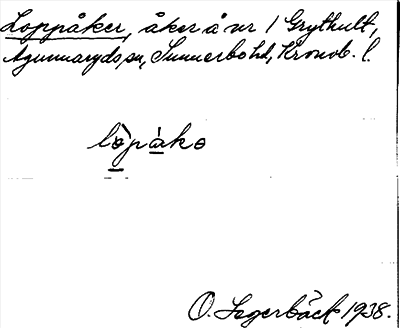 Loppåker, åker å nr 1 Grythult,
Agunnaryds sn, Sunnerbo hd, Kronob. l.
lòpåkə
O. Segerbäck 1938.